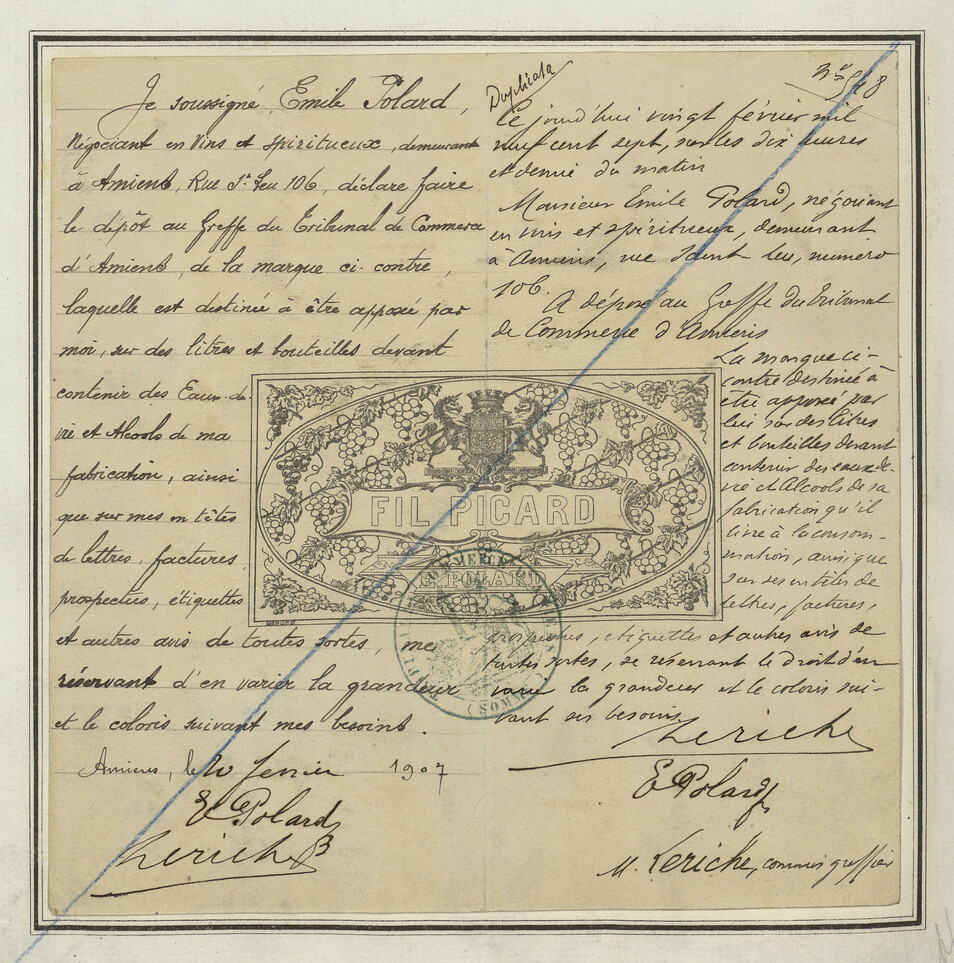 Je soussigné, Emile Polard,
Négociant en Vins et Spiritueux, demeurant
à Amiens, Rue St Leu 106, déclare faire
le dépôt au Greffe du Tribunal de Commerce
d'Amiens, de la marque ci-contre,
laquelle est destinée à être apposée par
moi, sur des litres et bouteilles devant
contenir des Eaux-de-
vie et Alcools de ma
fabrication, ainsi
que sur mes en têtes
de lettres, factures,
prospectus, étiquettes
et autres avis de toutes sortes, me
réservant d'en varier la grandeur
et le coloris suivant mes besoins.
Amiens, le 20 février 1907
E Polard
Leriche
Duplicata
Ce jourd'hui vingt février mil
neuf cent sept, sur les dix heures
et demie du matin
Monsieur Emile Polard, négociant
en vins et spiritueux, demeurant
à Amiens, rue Saint Leu, numéro
106.
A déposé au Greffe du Tribunal
de Commerce d'Amiens
La marque ci-
contre destinée à
être apposée par
lui sur des litres
et bouteilles devant
contenir des eaux de
vie et Alcools de sa
fabrication qu'il
livre à la consom-
mation, ainsi que
sur ses en têtes de
lettres, factures,
prospectus, étiquettes et autres avis de
toutes sortes, se réservant le droit d'en
varier la grandeur et le coloris sui-
vant ses besoins
Leriche
E Polard
M. Leriche, commis greffier
FIL PICARD
E. POLARD
COMMERCE
(SOMME)